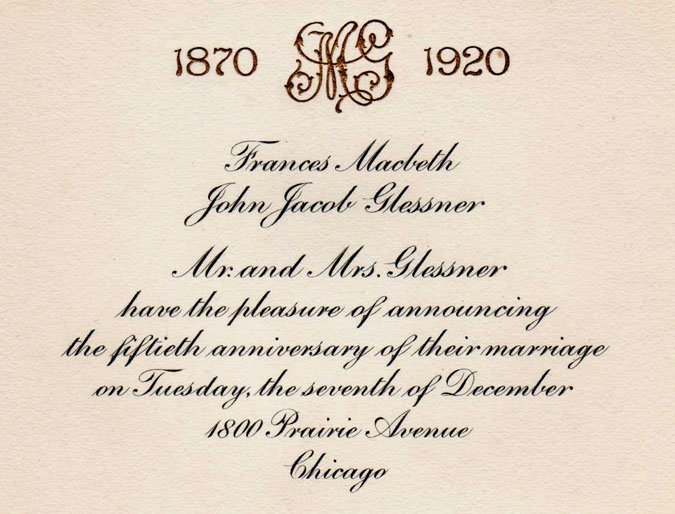 1870 MG 1920
Frances Macbeth
John Jacob Glessner
Mr. and Mrs. Glessner
have the pleasure of announcing
the fiftieth anniversary of their marriage
on Tuesday, the seventh of December
1800 Prairie Avenue
Chicago